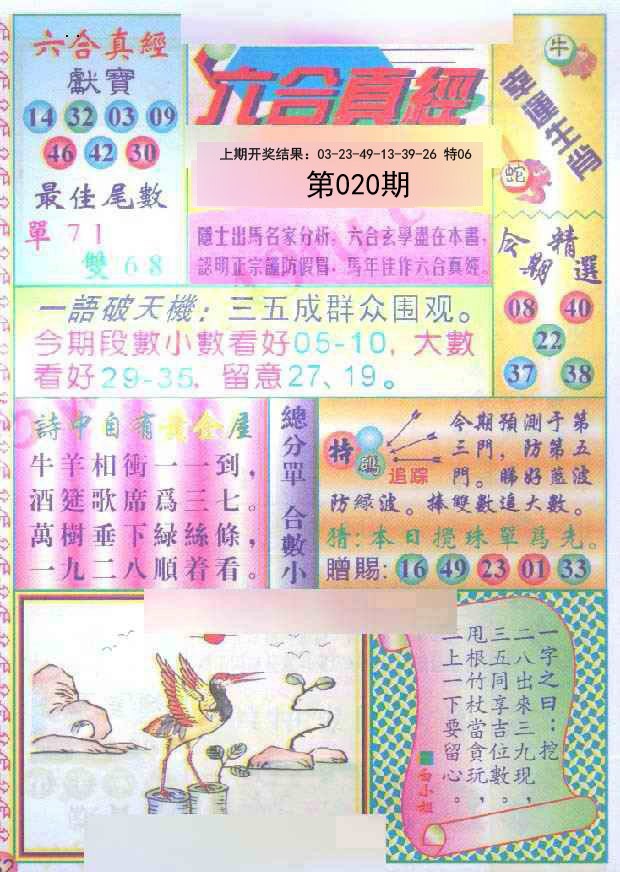 六合真經
獻寶
14 32 03 09
46 42 30
最佳尾數
單 71
雙 68
六合真經
上期开奖结果：03-23-49-13-39-26 特06
第020期
隱士出馬名家分析，六合玄學盡在本書，
認明正宗謹防假冒，馬年佳作六合真經。
牛
幸運生肖
蛇
今期精選
08 40
22
37 38
一語破天機：三五成群众围观。
今期段數小數看好05-10，大數
看好29-35，留意27、19。
詩中自有黃金屋
牛羊相衝一一到，
酒筵歌席爲三七。
萬樹垂下緑絲條，
一九二八順着看。
總分單 合數小
特碼
追踪
今期預測于第
三門，防第五
門。睇好藍波
防緑波。捧雙數追大數。
猜：本日攪珠單爲先。
贈賜：16 49 23 01 33
一字之曰：挖
二八出來三九現，
三五同享吉位數，
甩根竹杖當貪玩，
二上一下要留心。
■白小姐